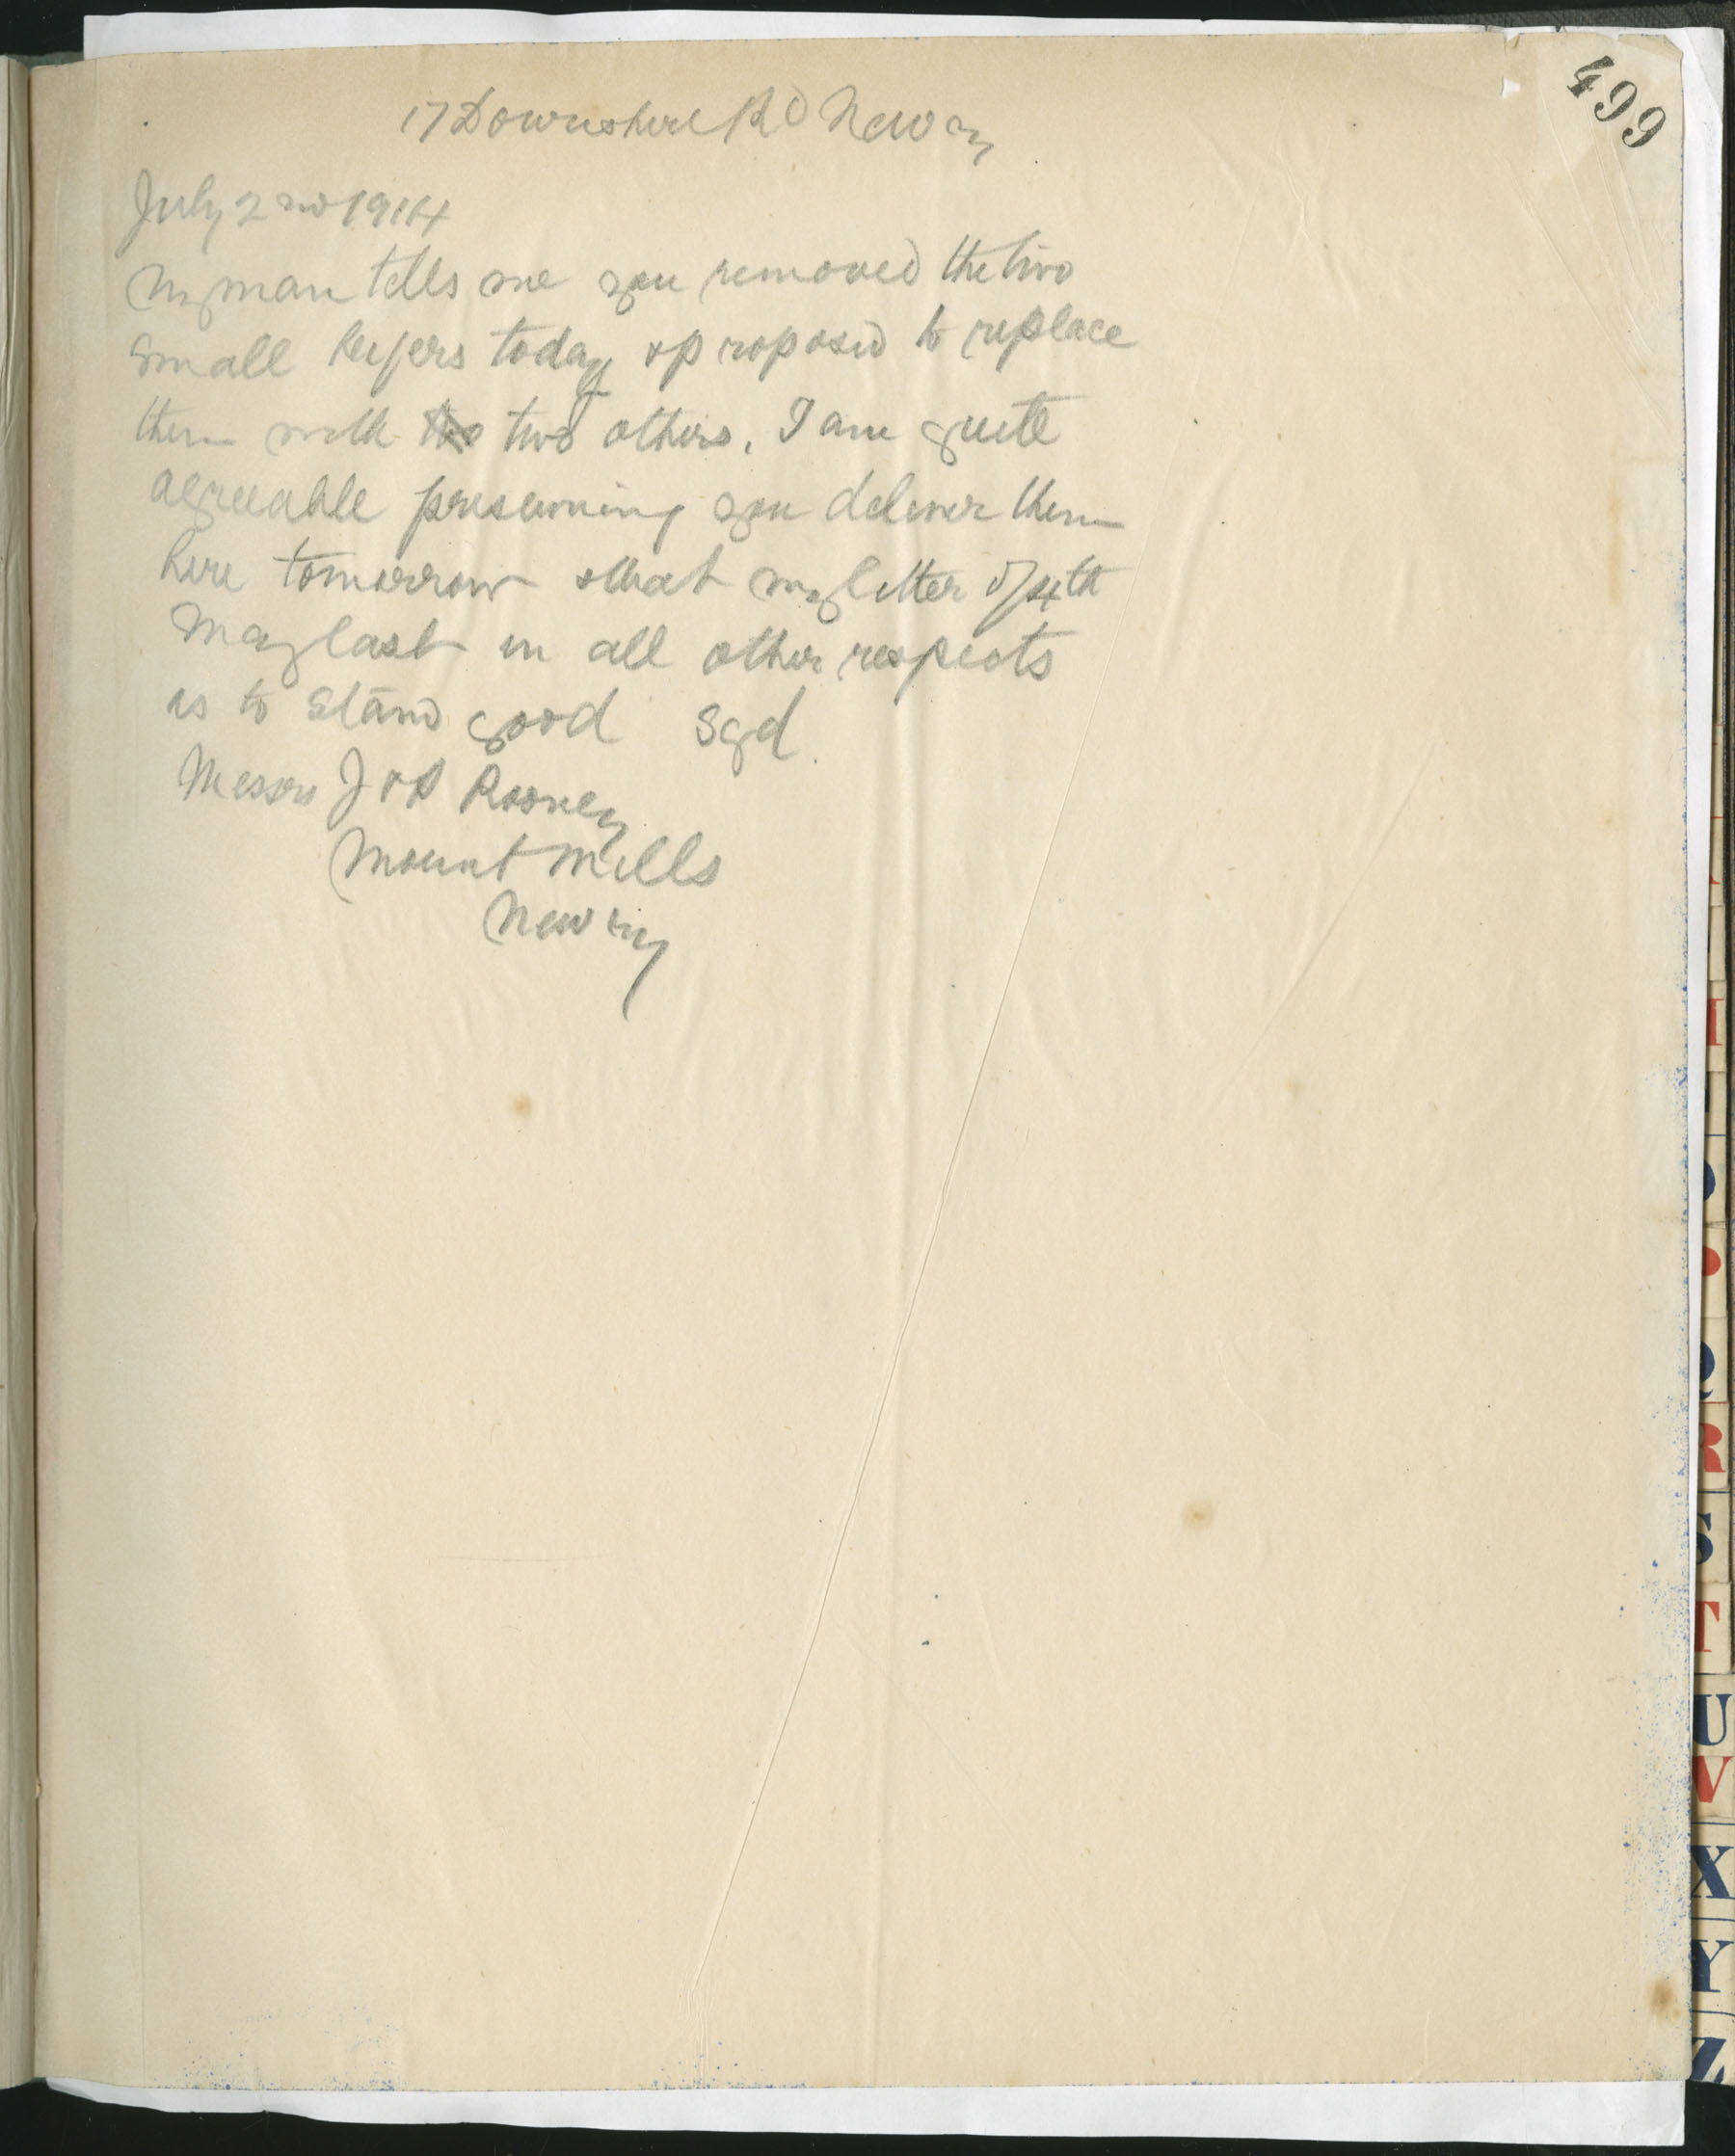 499
17 Downshire Rd Newry
July 2nd 1914
My man tells me you removed the two
small heifers today & proposed to replace
them with two others. I am quite
agreeable presuming you deliver them
here tomorrow & that my letter of 4th
May last in all other respects
is to stand good Sgd
Messrs J & P Rooney
Mount Mills
Newry
Q
R
S
T
U
V
X
Y
Z